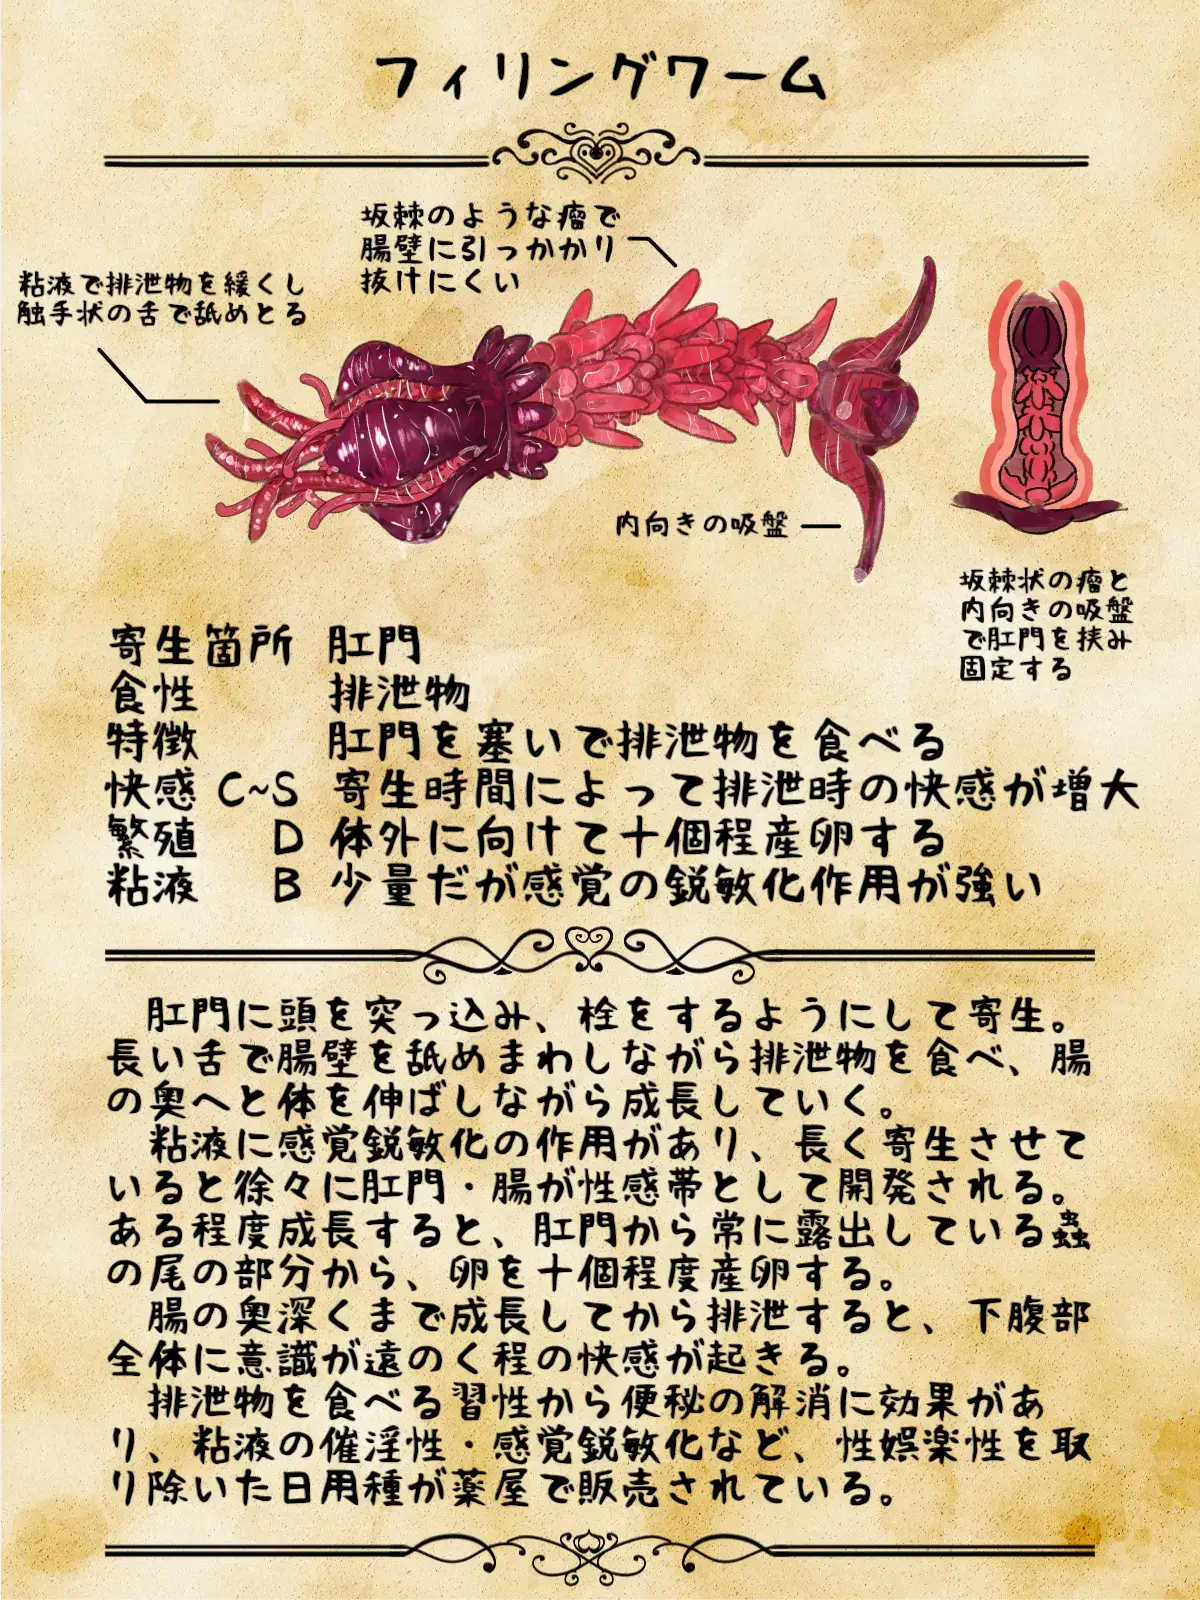 フィリングワーム
坂棘のような瘤で
腸壁に引っかかり
抜けにくい
粘液で排泄物を緩くし
触手状の舌で舐めとる
内向きの吸盤
坂棘状の瘤と
内向きの吸盤
で肛門を挟み
固定する
寄生箇所 肛門
食性 排泄物
特徴 肛門を塞いで排泄物を食べる
快感 C~S 寄生時間によって排泄時の快感が増大
繁殖 D 体外に向けて十個程産卵する
粘液 B 少量だが感覚の鋭敏化作用が強い
肛門に頭を突っ込み、栓をするようにして寄生。
長い舌で腸壁を舐めまわしながら排泄物を食べ、腸
の奥へと体を伸ばしながら成長していく。
粘液に感覚鋭敏化の作用があり、長く寄生させて
いると徐々に肛門・腸が性感帯として開発される。
ある程度成長すると、肛門から常に露出している蟲
の尾の部分から、卵を十個程度産卵する。
腸の奥深くまで成長してから排泄すると、下腹部
全体に意識が遠のく程の快感が起きる。
排泄物を食べる習性から便秘の解消に効果があ
り、粘液の催淫性・感覚鋭敏化など、性娯楽性を取
り除いた日用種が薬屋で販売されている。